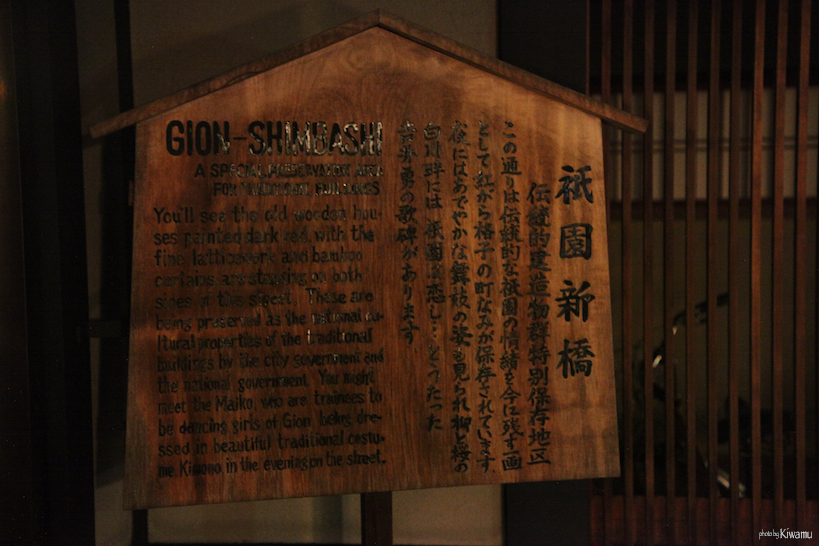 祇園新橋
伝統的建造物群特別保存地区
この通りは伝統的な祇園の情緒を今に残す一画
として紅がら格子の町なみが保存されています
夜にはあでやかな舞妓の姿も見られ柳と桜の
白川畔には「祇園は恋し…」とうたった
吉井勇の歌碑があります
GION-SHIMBASHI
A SPECIAL PRESERVATION AREA
FOR TRADITIONAL BUILDINGS
You'll see the old wooden hou-
ses painted dark red, with the
fine latticework and bamboo
curtains, are standing on both
sides in this street. These are
being preserved as the national cu-
ltural properties of the traditional
buildings by the city government and
the national government. You might
meet the Maiko, who are trainees to
be dancing girls of Gion being dre-
ssed in beautiful traditional costu-
me, Kimono, in the evening on the street.
photo by Kiwamu